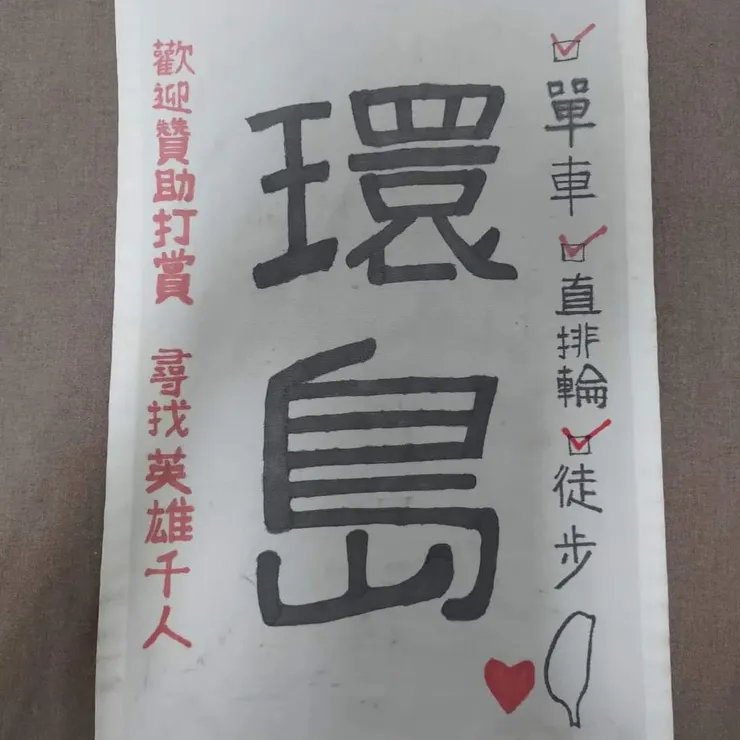 單車
直排輪
徒步
環島
歡迎贊助打賞 尋找英雄千人